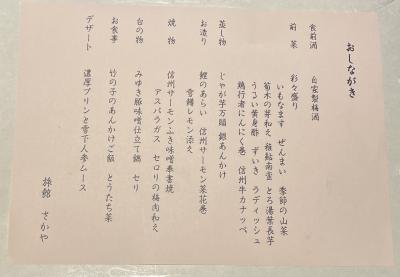 おしながき
食前酒 自家製梅酒
前菜 彩々盛り
いもなます ぜんまい 季節の山菜
筍木の芽和え 稚鮎南蛮 とろ湯葉長芋
うるい黄身酢 ずいき ラディッシュ
鶏行者にんにく巻 信州牛カナッペ
蒸し物 じゃが芋万頭 銀あんかけ
お造り 鯉のあらい 信州サーモン菜花巻
雪鱒レモン添え
焼物 信州サーモンふき味噌奉書焼
アスパラガス セロリの梅肉和え
台の物 みゆき豚味噌仕立て鍋 セリ
お食事 竹の子のあんかけご飯 とうたち菜
デザート 濃厚プリンと雪下人参ムース
旅館 さかや